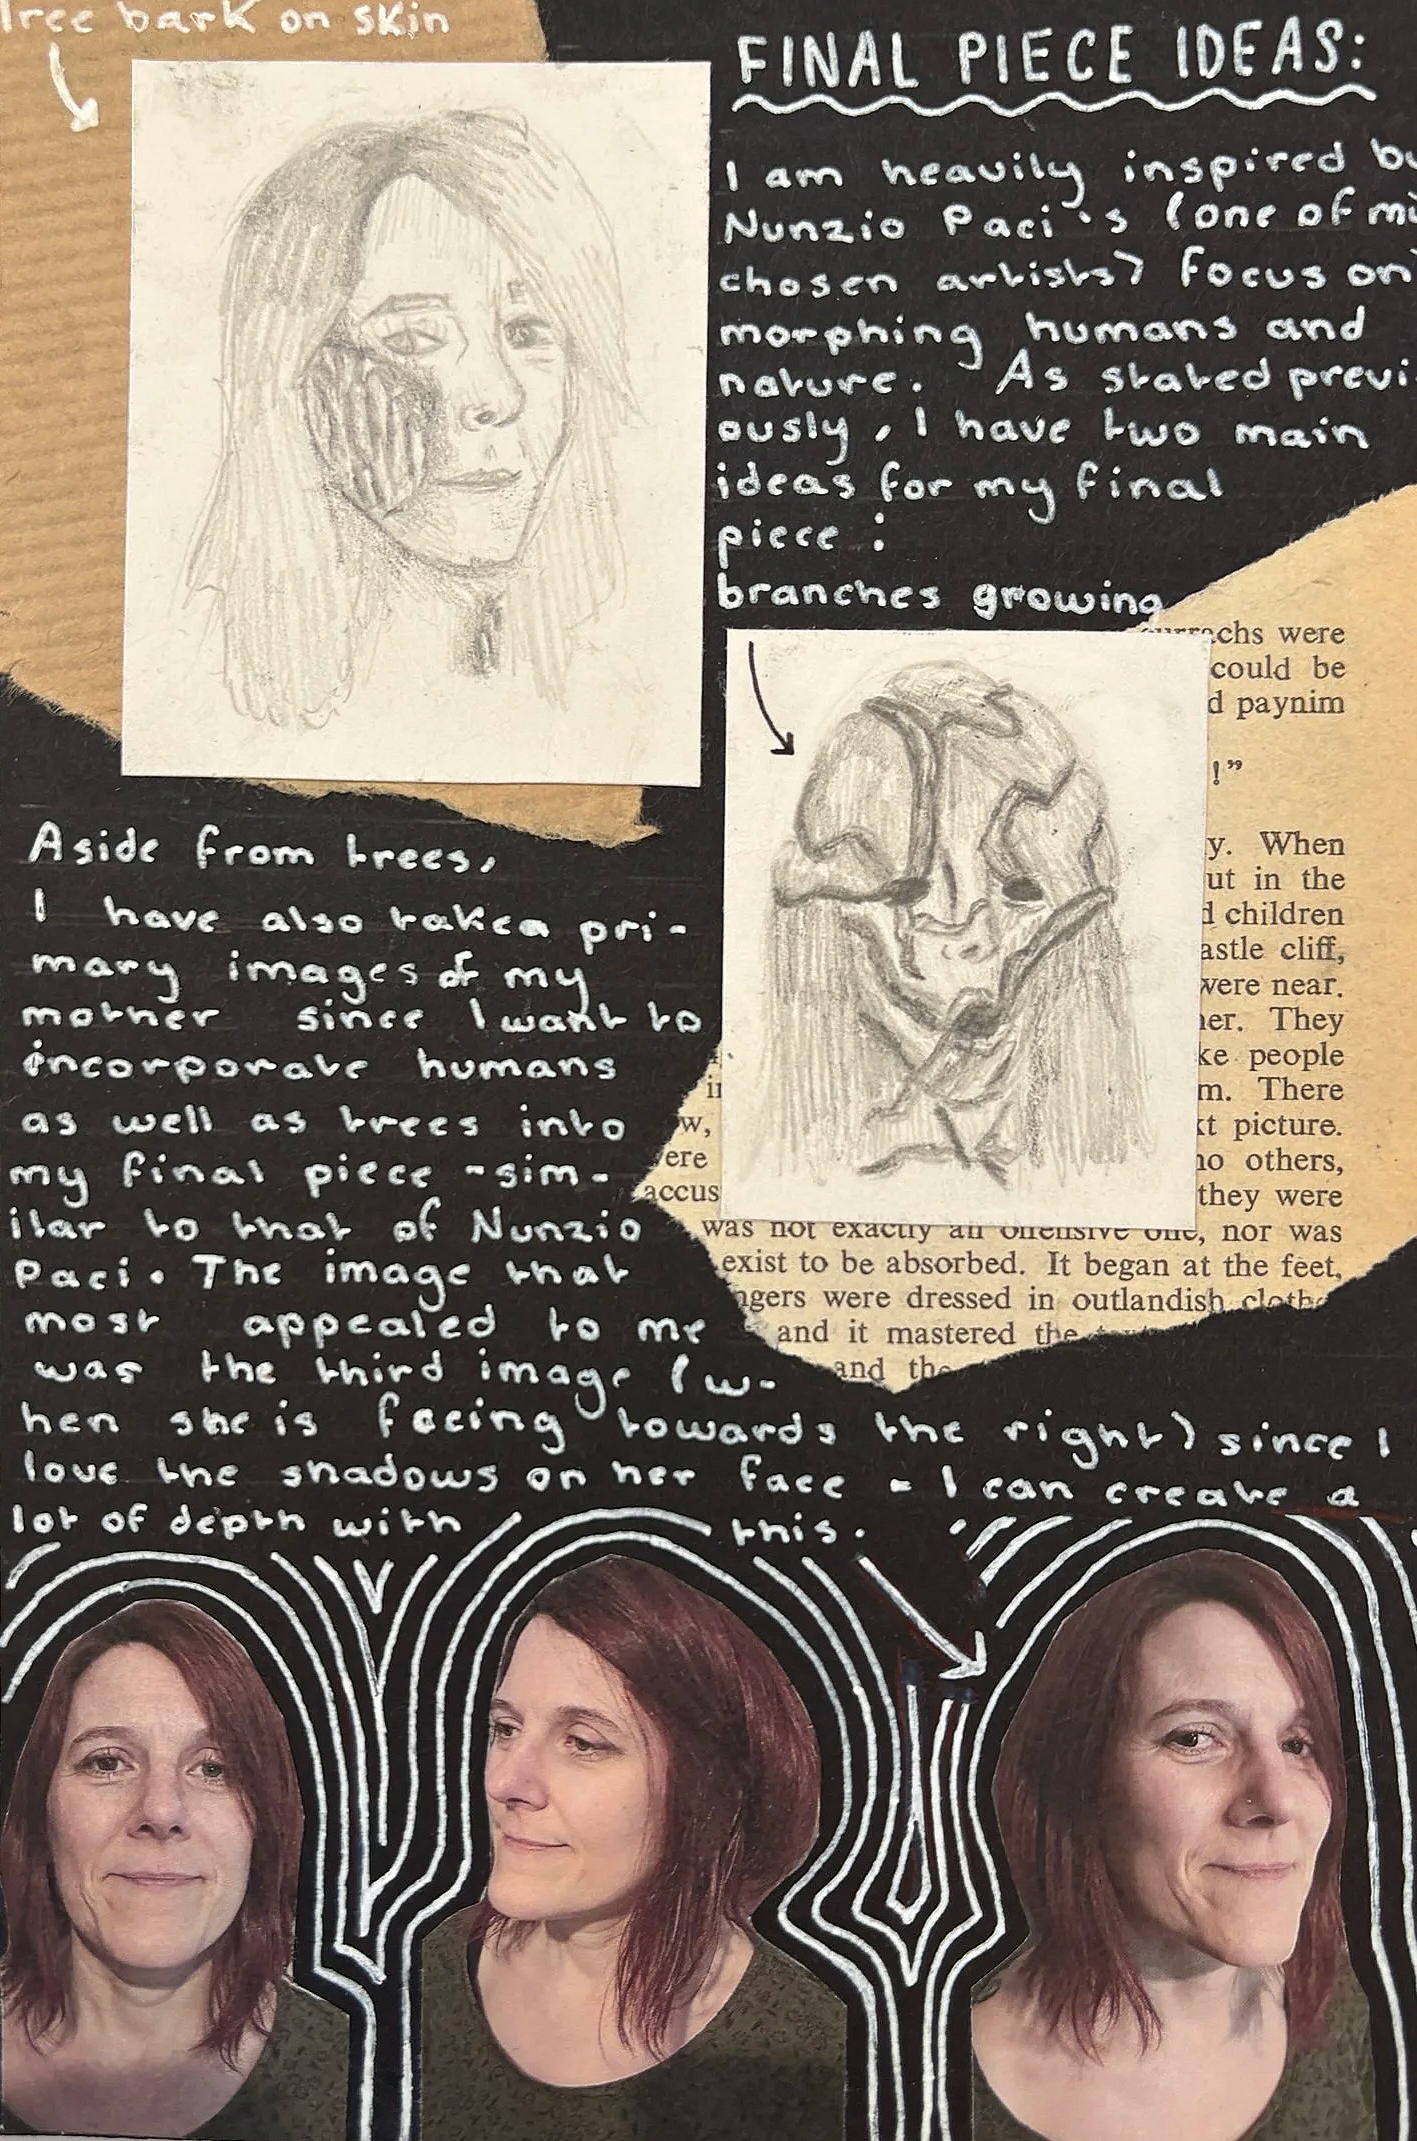 Tree bark on skin
FINAL PIECE IDEAS:
I am heavily inspired by
Nunzio Paci's (one of my
chosen artists) focus on
morphing humans and
nature. As stated previ-
ously, I have two main
ideas for my final
piece:
branches growing
were
could be
paynim
!”
When
in the
children
cliff,
were near.
They
people
There
picture.
others,
they were
was not exactly an offensive one, nor was
exist to be absorbed. It began at the feet,
were dressed in outlandish
and it mastered the
and the
Aside from trees,
I have also taken pri-
mary images of my
mother since I want to
incorporate humans
as well as trees into
my final piece -sim-
ilar to that of Nunzio
Paci. The image that
most appealed to me
was the third image (w-
hen she is facing towards the right) since I
love the shadows on her face - I can create a
lot of depth with this.